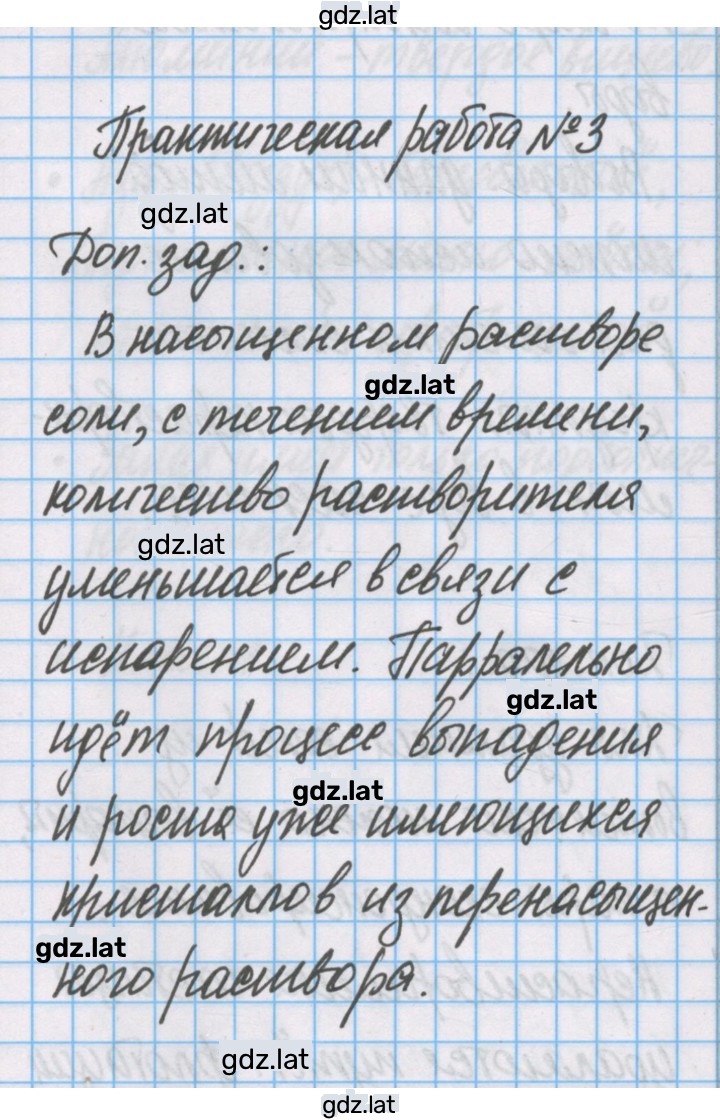 gdz.lat
Практическая работа №3
gdz.lat
Доп. зад.:
В насыщенном растворе
gdz.lat
соли, с течением времени,
количество растворителя
gdz.lat
уменьшается в связи с
испарением. Парралельно
gdz.lat
идёт процесс выпадения
gdz.lat
и роста уже имеющихся
кристаллов из перенасыщен-
gdz.lat
ного раствора.
gdz.lat
gdz.lat